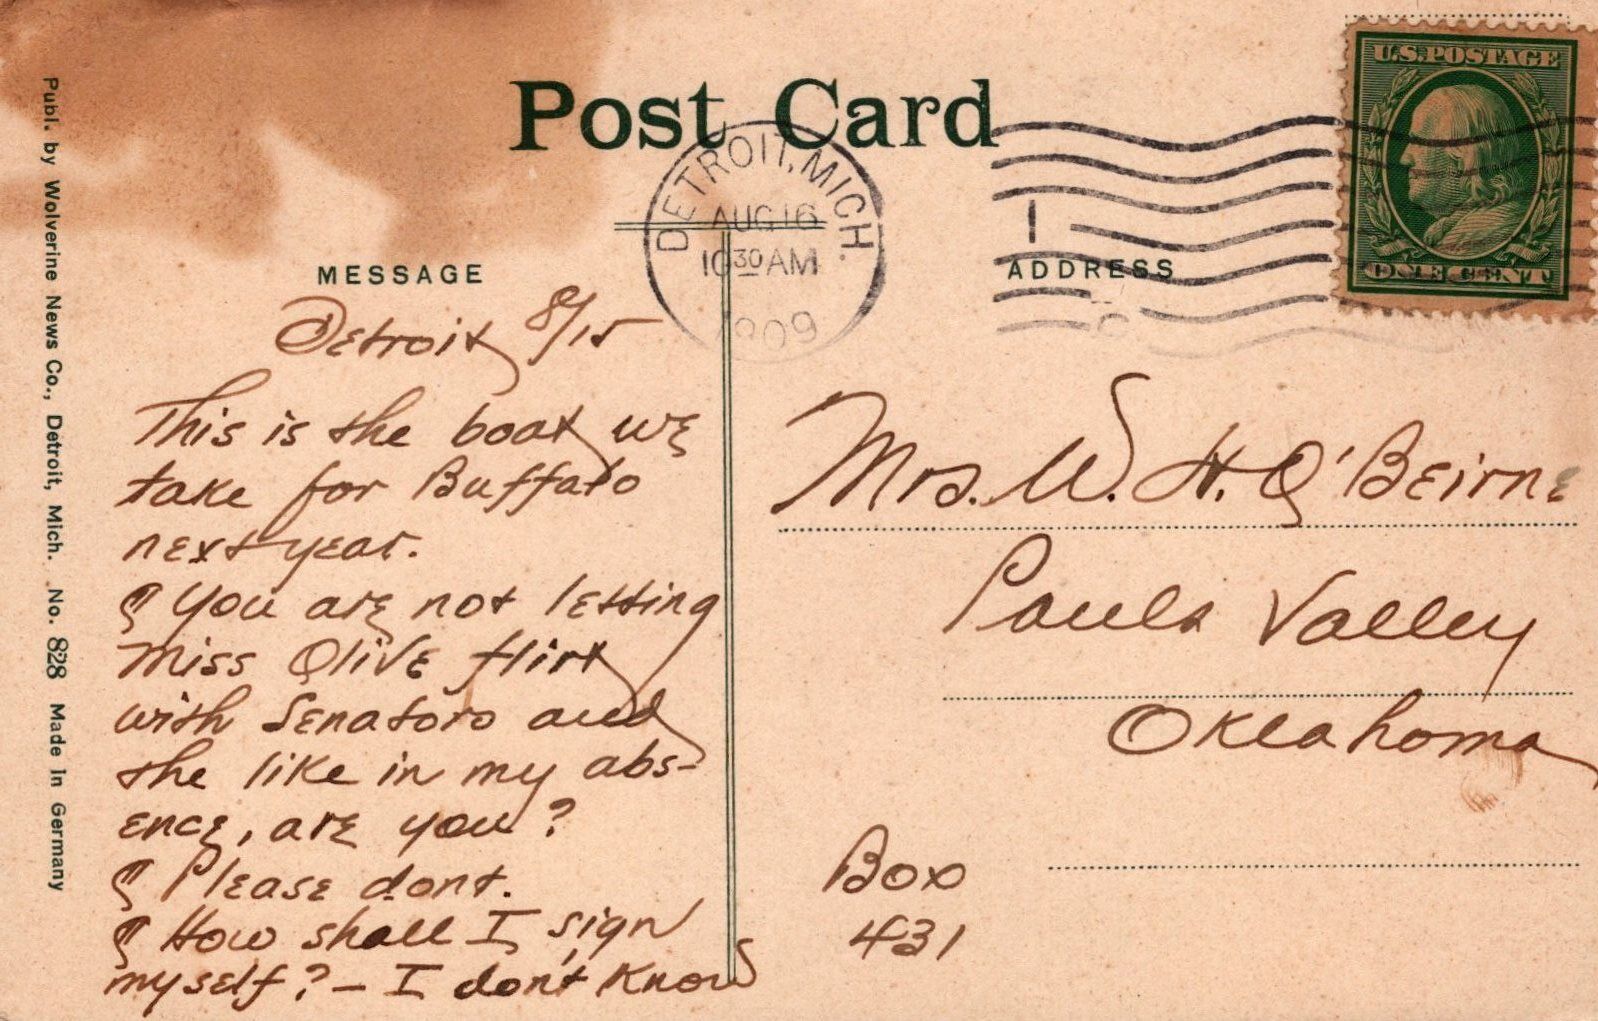 Post Card
U.S. POSTAGE
ONE CENT
DETROIT, MICH.
AUG 16
10 30 AM
1909
1
MESSAGE
ADDRESS
Detroit 8/15
This is the boat we
take for Buffalo
next year.
¶ You are not letting
Miss Olive flirt
with Senators and
the like in my abs-
ence, are you?
¶ Please dont.
¶ How shall I sign
myself? — I don't know
Mrs. W. H. O'Beirne
Pauls Valley
Oklahoma
Box
431
Publ. by Wolverine News Co., Detroit, Mich. No. 828 Made In Germany